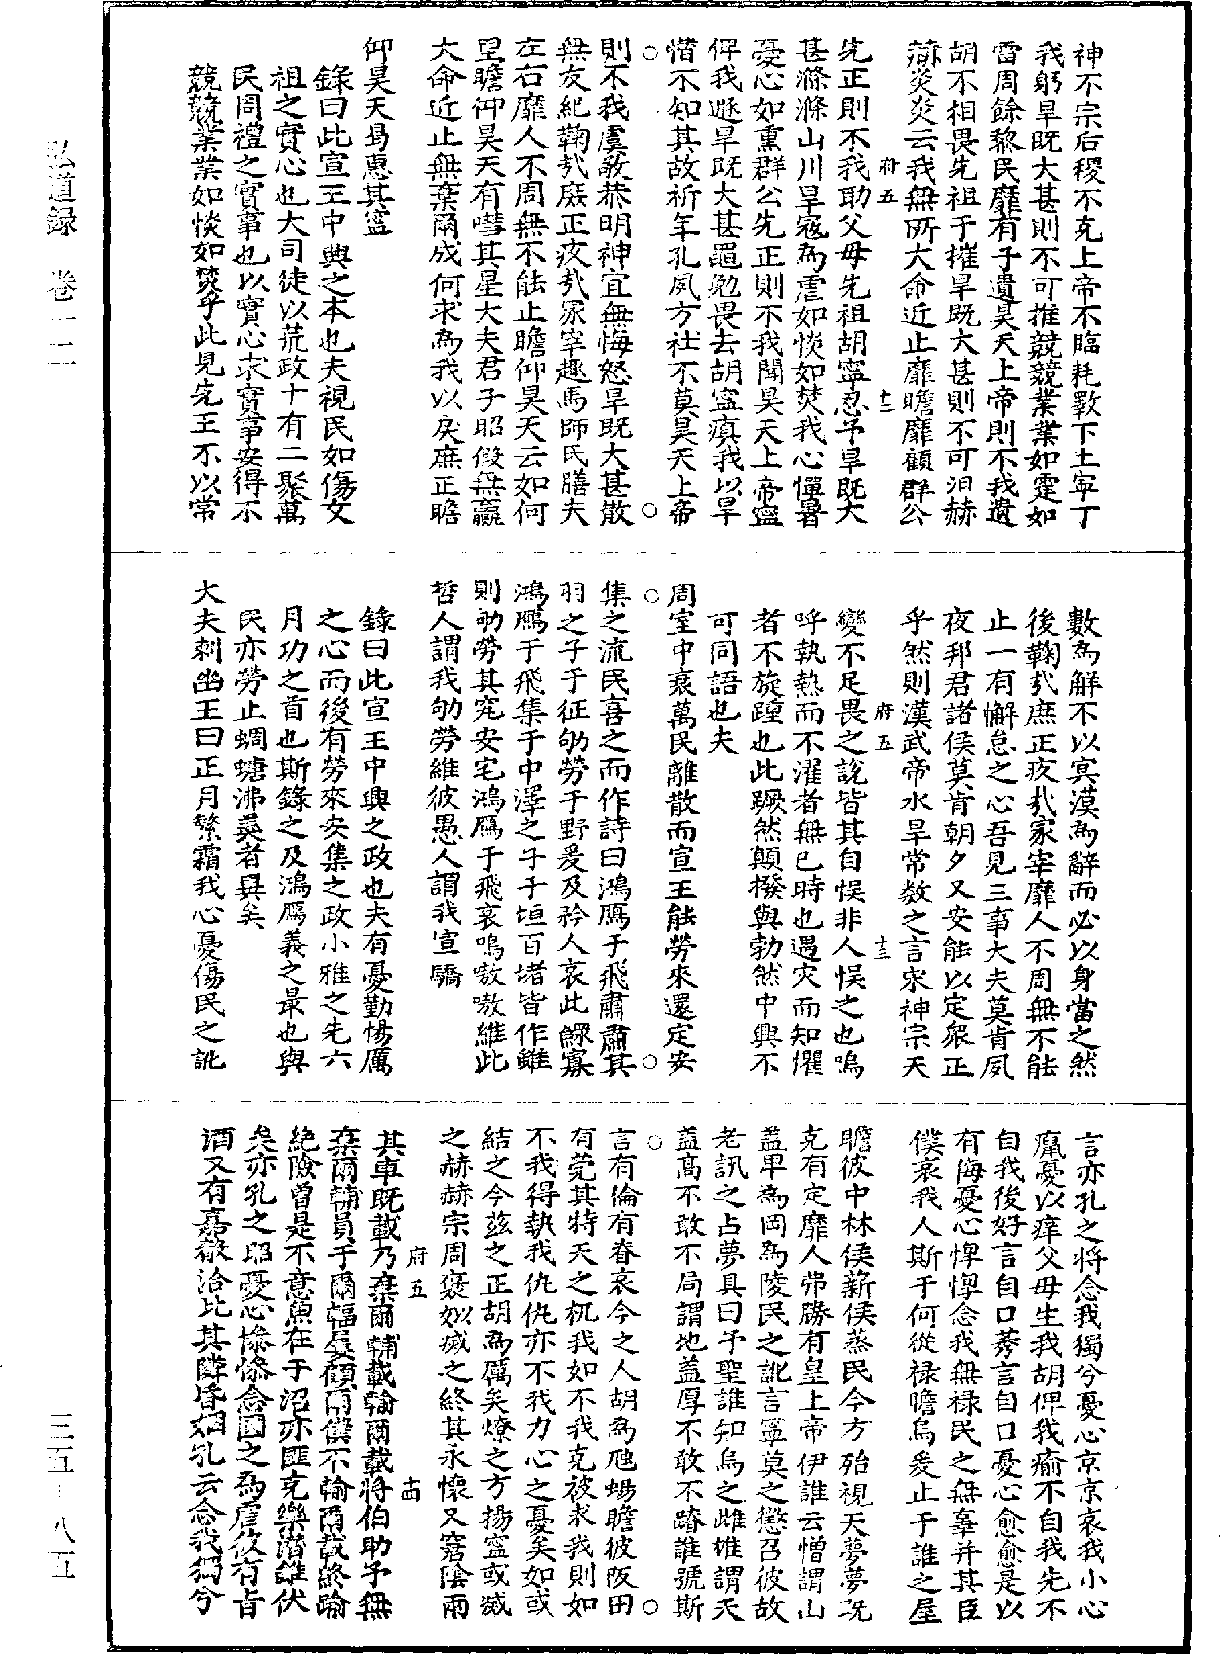 神不宗后稷不克上帝不臨耗斁下土寧丁
我躬旱既大甚則不可推兢兢業業如霆如
雷周餘黎民靡有孑遺昊天上帝則不我遺
胡不相畏先祖于摧旱既大甚則不可沮赫
赫炎炎云我無所大命近止靡瞻靡顧群公
府五 十二
先正則不我助父母先祖胡寧忍予旱既大
甚滌滌山川旱寇為虐如惔如焚我心憚暑
憂心如熏群公先正則不我聞昊天上帝寧
俾我遯旱既大甚黽勉畏去胡寧瘨我以旱
憯不知其故祈年孔夙方社不莫昊天上帝
則不我虞敬恭明神宜無悔怒旱既大甚散
無友紀鞫哉庶正疚哉冢宰趣馬師氏膳夫
左右靡人不周無不能止瞻仰昊天云如何
里瞻仰昊天有嘒其星大夫君子昭假無贏
大命近止無棄爾成何求為我以戾庶正瞻
仰昊天曷惠其寧
錄曰此宣王中興之本也夫視民如傷文
祖之實心也大司徒以荒政十有二聚萬
民周禮之實事也以實心求實事安得不
兢兢業業如惔如焚乎此見先王不以常
弘道録 卷一二
數為解不以冥漠為辭而必以身當之然
後鞫哉庶正疚哉冢宰靡人不周無不能
止一有懈怠之心吾見三事大夫莫肯夙
夜邦君諸侯莫肯朝夕又安能以定眾正
乎然則漢武帝水旱常數之言宋神宗天
府五 十三
變不足畏之說皆其自悞非人悞之也嗚
呼執熱而不濯者無已時也遇灾而知懼
者不旋踵也此蹶然顛撥與勃然中興不
可同語也夫
周室中衰萬民離散而宣王能勞來還定安
集之流民喜之而作詩曰鴻鴈于飛肅肅其
羽之子于征劬勞于野爰及矜人哀此鰥寡
鴻鴈于飛集于中澤之子于垣百堵皆作雖
則劬勞其究安宅鴻鴈于飛哀鳴嗸嗸維此
哲人謂我劬勞維彼愚人謂我宣驕
錄曰此宣王中興之政也夫有憂勤惕厲
之心而後有勞來安集之政小雅之先六
月功之首也斯錄之及鴻鴈義之最也與
民亦勞止蜩螗沸羮者異矣
大夫刺幽王曰正月繁霜我心憂傷民之訛
言亦孔之將念我獨兮憂心京京哀我小心
癙憂以痒父母生我胡俾我瘉不自我先不
自我後好言自口莠言自口憂心愈愈是以
有侮憂心惸惸念我無祿民之無辜并其臣
僕哀我人斯于何從祿瞻烏爰止于誰之屋
瞻彼中林侯薪侯蒸民今方殆視天夢夢既
克有定靡人弗勝有皇上帝伊誰云憎謂山
蓋卑為岡為陵民之訛言寧莫之懲召彼故
老訊之占夢具曰予聖誰知烏之雌雄謂天
蓋高不敢不局謂地蓋厚不敢不蹐維號斯
言有倫有脊哀今之人胡為虺蜴瞻彼阪田
有菀其特天之杌我如不我克彼求我則如
不我得執我仇仇亦不我力心之憂矣如或
結之今茲之正胡為厲矣燎之方揚寧或滅
之赫赫宗周褒姒烕之終其永懷又窘陰雨
府五 十四
其車既載乃棄爾輔載輸爾載將伯助予無
棄爾輔員于爾輻屢顧爾僕不輸爾載終踰
絕險曾是不意魚在于沼亦匪克樂潛雖伏
矣亦孔之昭憂心慘慘念國之為虐彼有旨
酒又有嘉殽洽比其鄰昏姻孔云念我獨兮
三五-八五